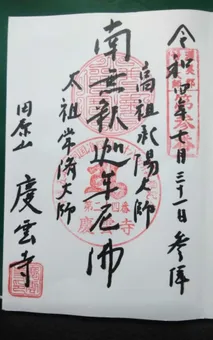 令和四年七月三十一日参拝
高祖承陽大師
南無釈迦牟尼佛
太祖常済大師
田原山 慶雲寺
慶雲寺